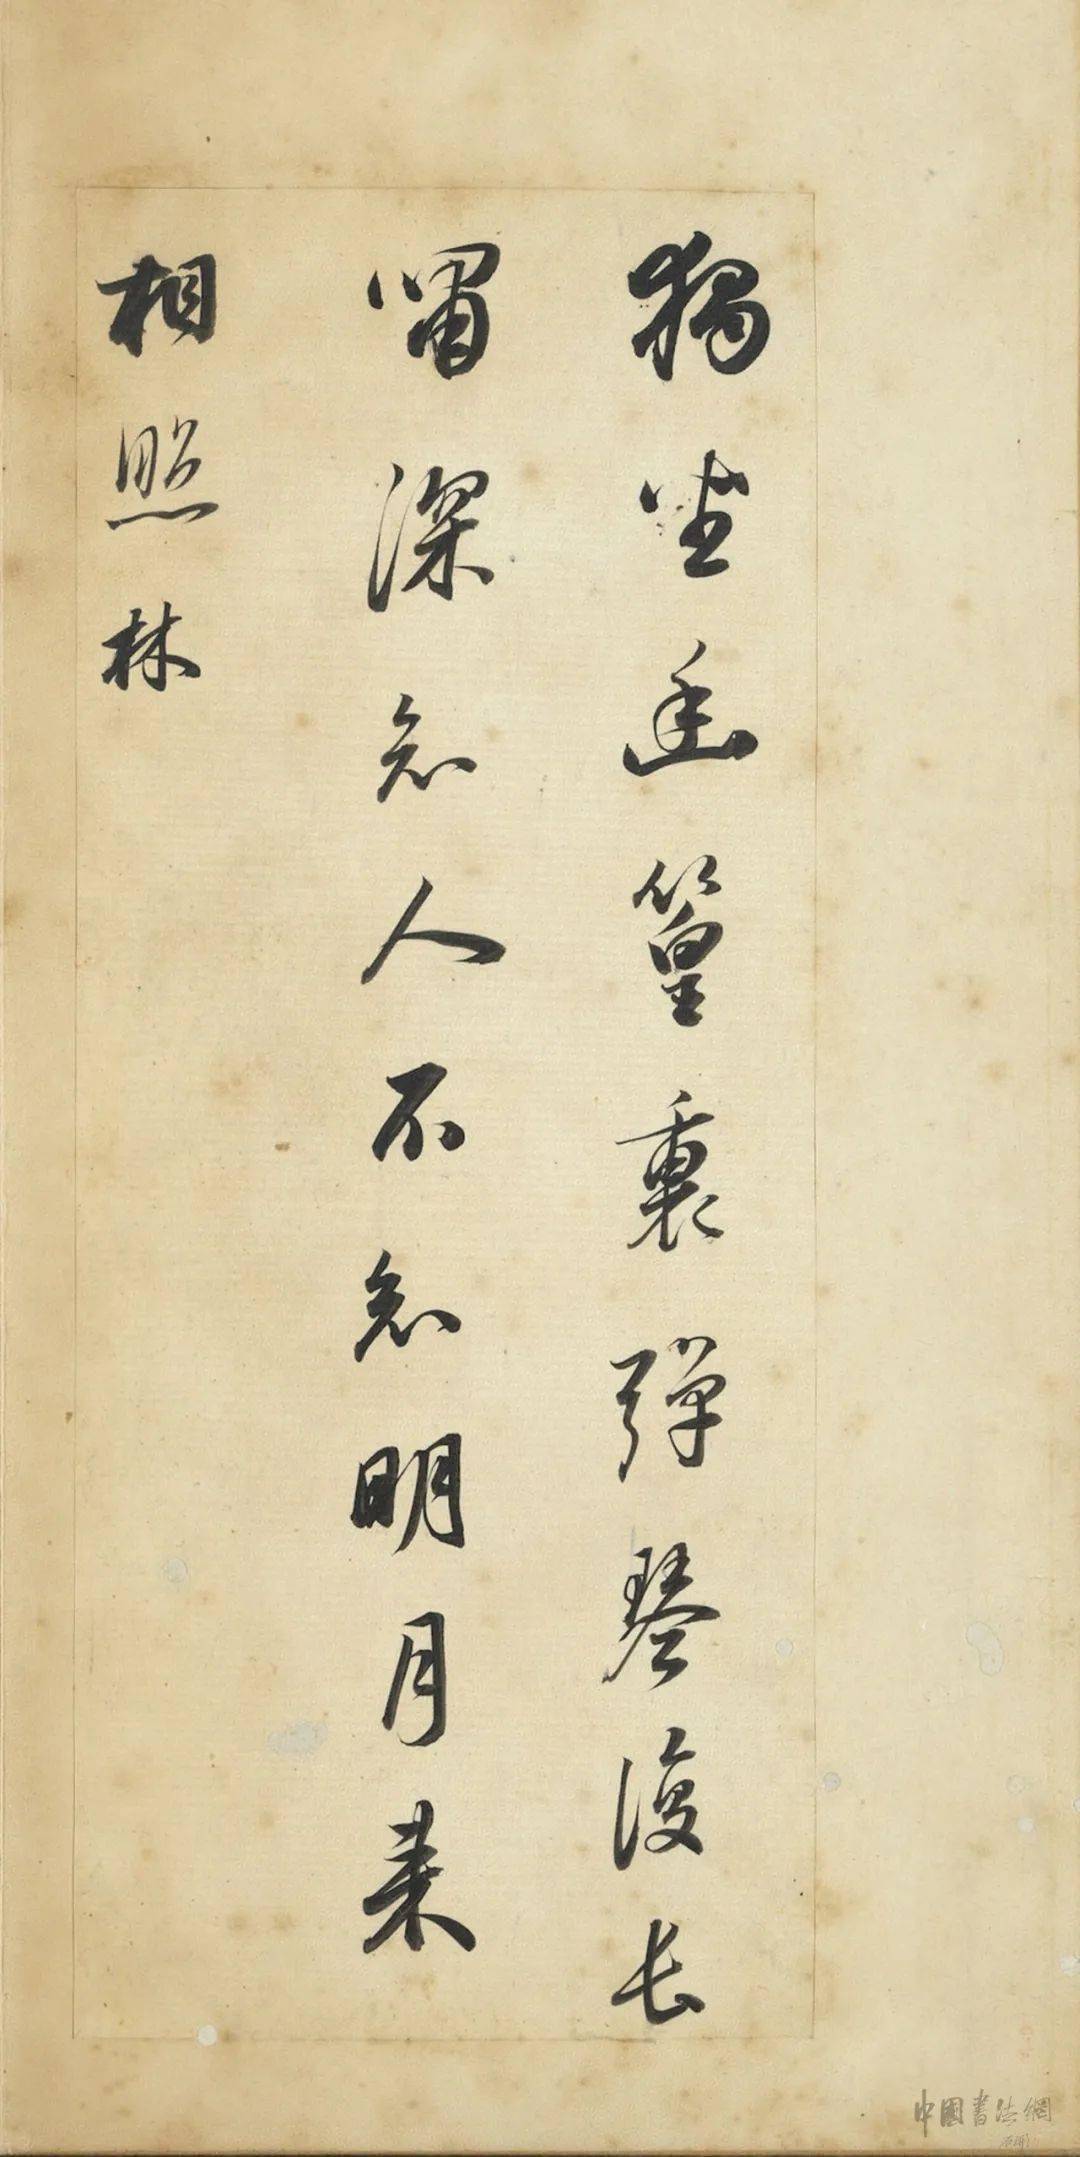 獨坐幽篁裏彈琴復長
嘯深知人不知明月来
相照林
中國書法網